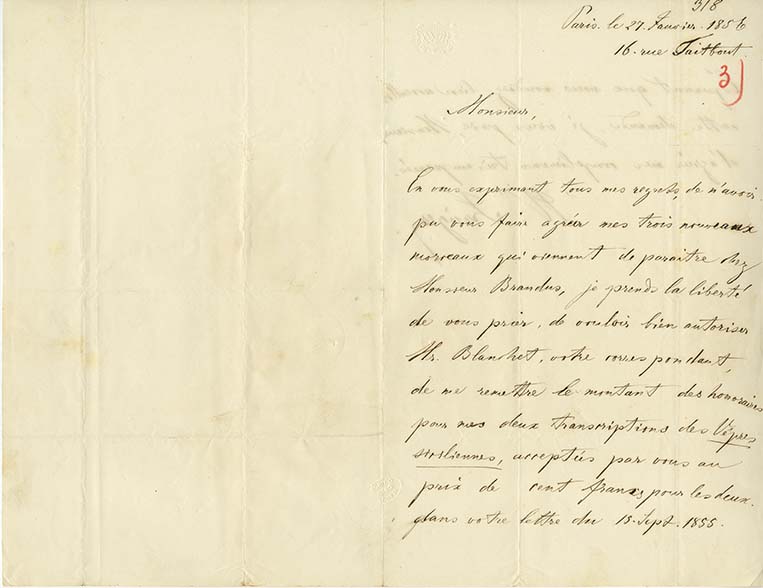 318
Paris. le 27. Janvier. 1856
16. rue Taitbout.
3)
Monsieur,
En vous exprimant tous mes regrets, de n'avoir
pu vous faire agréer mes trois nouveaux
morceaux qui viennent de paraitre chez
Monsieur Brandus, je prends la liberté
de vous prier, de vouloir bien autoriser
Mr. Blanchet, votre correspondant,
de me remettre le montant des honoraires
pour mes deux transcriptions des Vêpres
siciliennes, acceptés par vous au
prix de cent francs pour les deux.
dans votre lettre du 15. Sept. 1855.